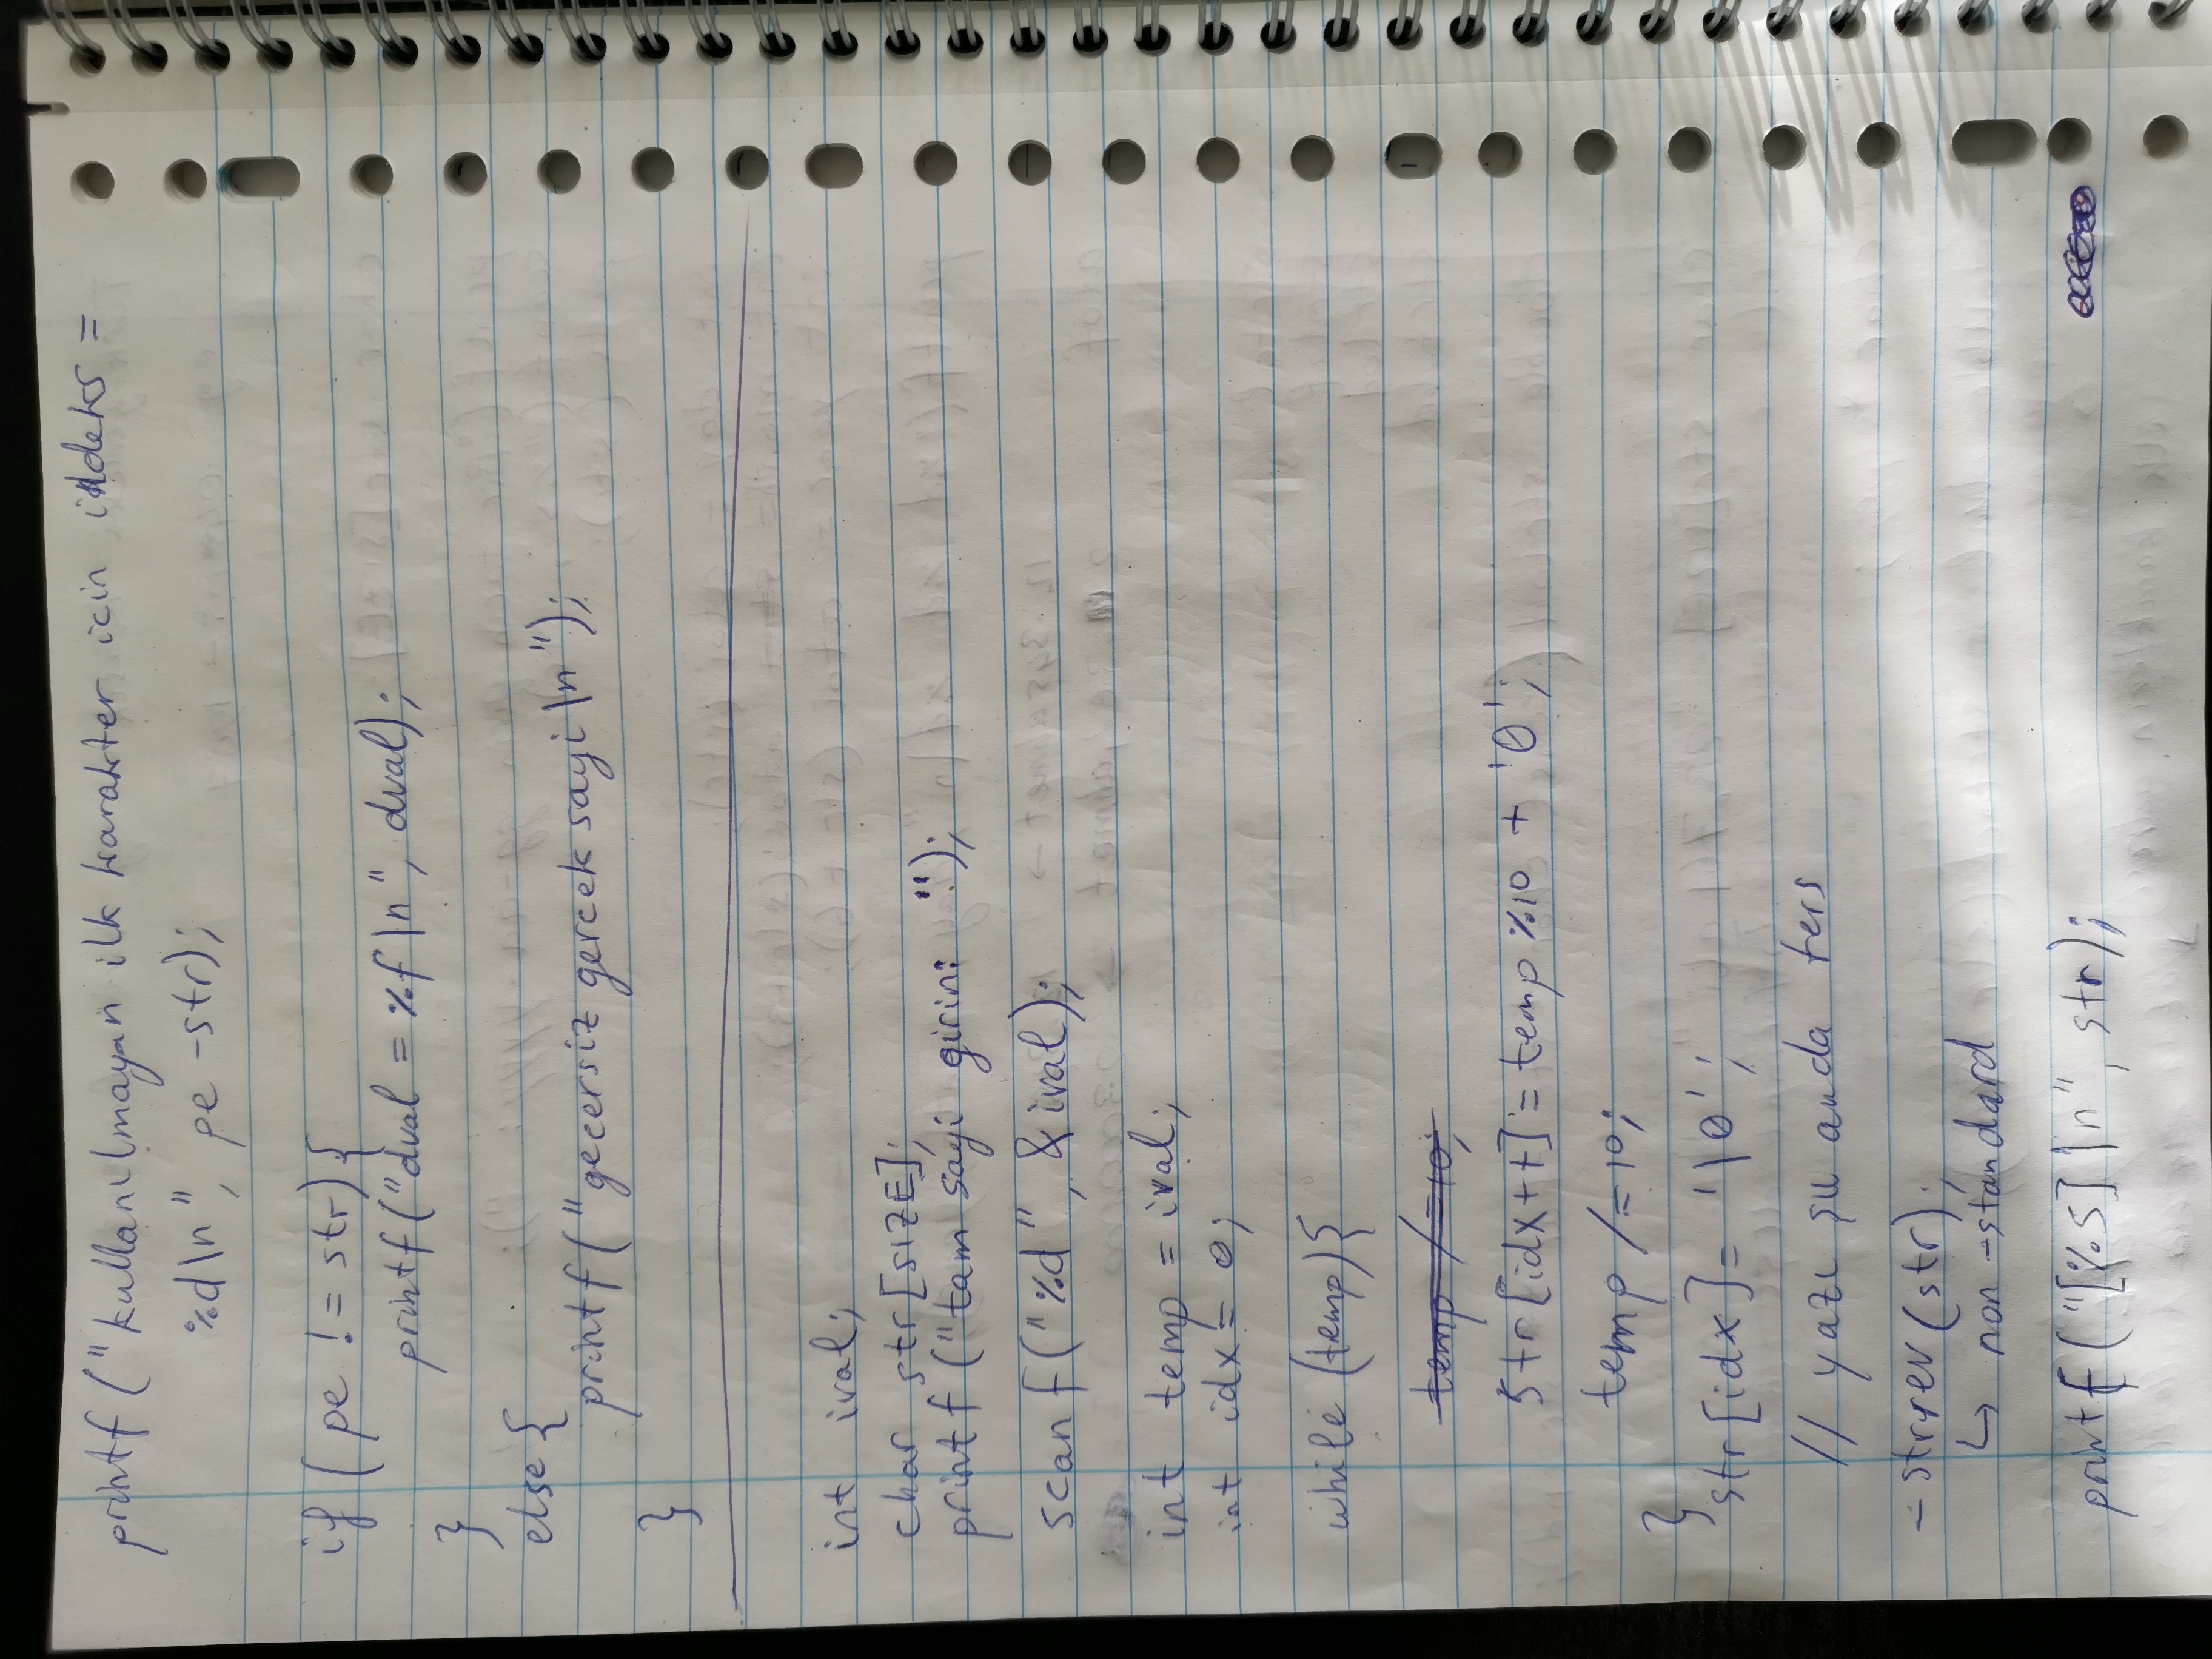 printf ("kullanılmayan ilk karakter icin indeks =
%d\n", pe -str);
if ( pe != str) {
printf ("dval = %f \n", dval);
}
else {
printf ("gecersiz gercek sayi \n");
}
int ival;
char str[SIZE];
printf ("tam sayi girin: ");
scanf ("%d", &ival);
int temp = ival;
int idx = 0;
while (temp) {
temp /=10;
str [idx++] = temp %10 + '0';
temp /=10;
}
str [idx] = '\0';
// yazı şu anda ters
_strrev (str);
↳ non-standard
printf ("[%s] \n", str);